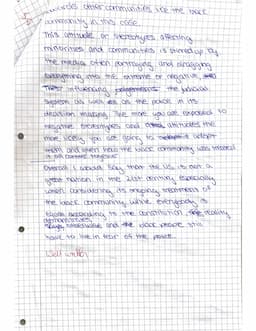 towards other communities like the black
community in this case.
This attitude or stereotypes affecting
minorities and communities is stirred up by
the media often portraying and dragging
everything into the extreme or negative,
influencing the judicial
system as well as the police in its
decision making. The more you are exposed to
negative stereotypes and attitudes the
more likely you are going to adopt
them and
Overall I would say that the US is not a
great nation in the 21st century especially
when considering its ongoing treatment of
the black community. While everybody is
equal according to the constitution, the reality
demonstrates
otherwise and the black people still
have to live in fear of the police.
Well written